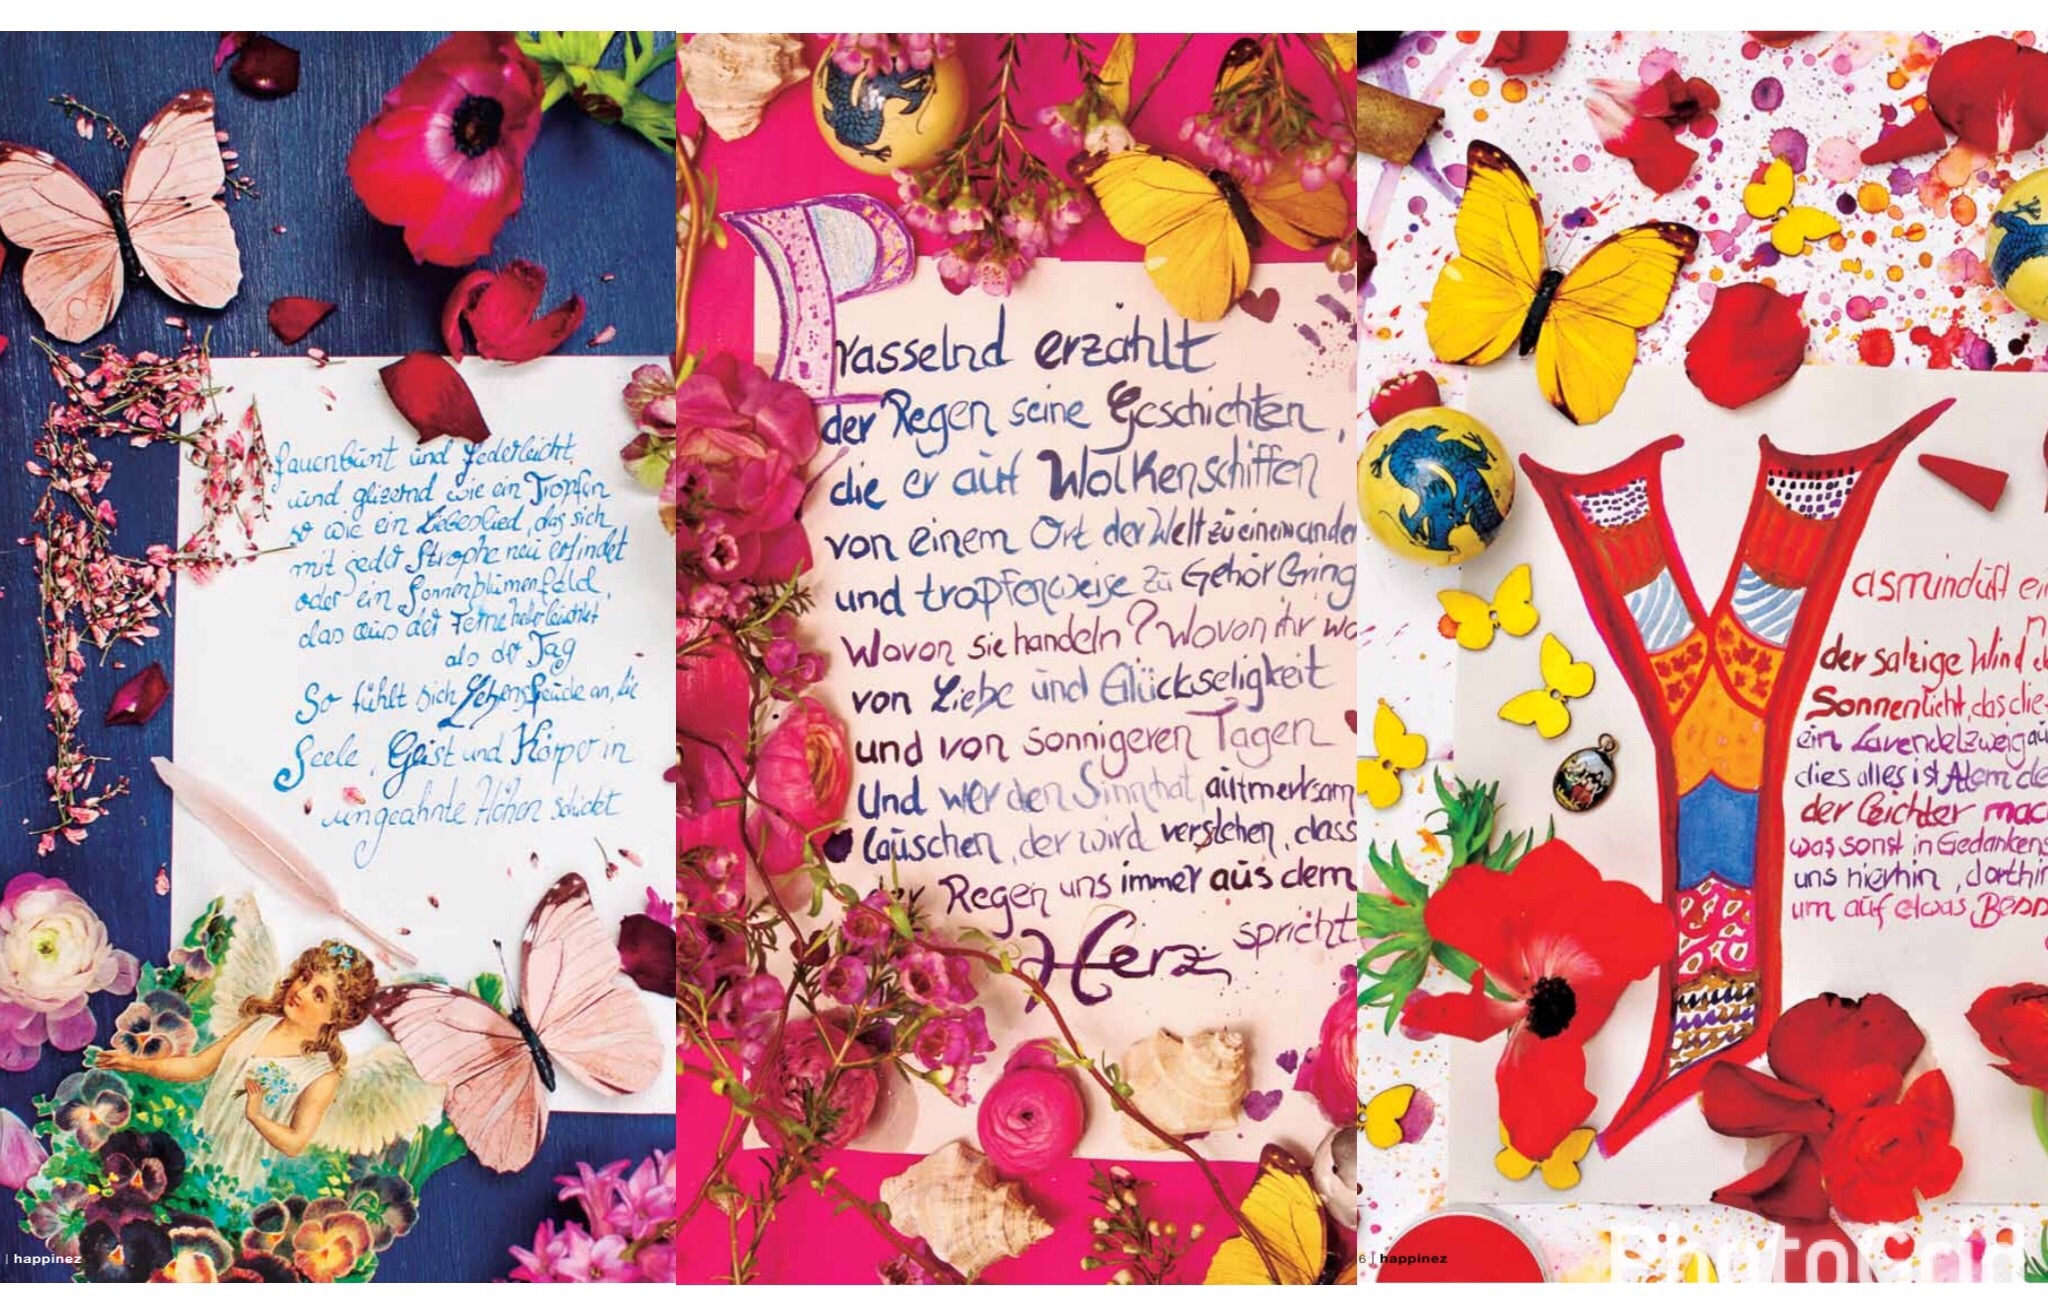 Pfauenbunt und federleicht,
und glitzernd wie ein Tropfen
so wie ein Liebeslied, das sich
mit jeder Strophe neu erfindet
oder ein Sonnenblumenfeld,
das aus der Ferne heller leuchtet
als der Tag
So fühlt sich Lebensfreude an, die
Seele, Geist und Körper in
ungeahnte Höhen schickt
| happinez
Prasselnd erzählt
der Regen seine Geschichten,
die er auf Wolkenschiffen
von einem Ort der Welt zu einem ander
und tropfenweise zu Gehör bring
Wovon sie handeln? Wovon ihr wo
von Liebe und Glückseligkeit
und von sonnigeren Tagen
Und wer den Sinn hat, aufmerksam
lauschen, der wird verstehen, dass
der Regen uns immer aus dem
Herz spricht
6 | happinez
Y
asminduft ei
n
der salzige Wind
Sonnenlicht, das die
ein Lavendelzweig au
dies alles ist Atem de
der leichter mac
was sonst in Gedankens
uns hierhin, dorthin
um auf etwas Bess
PhotoGrid